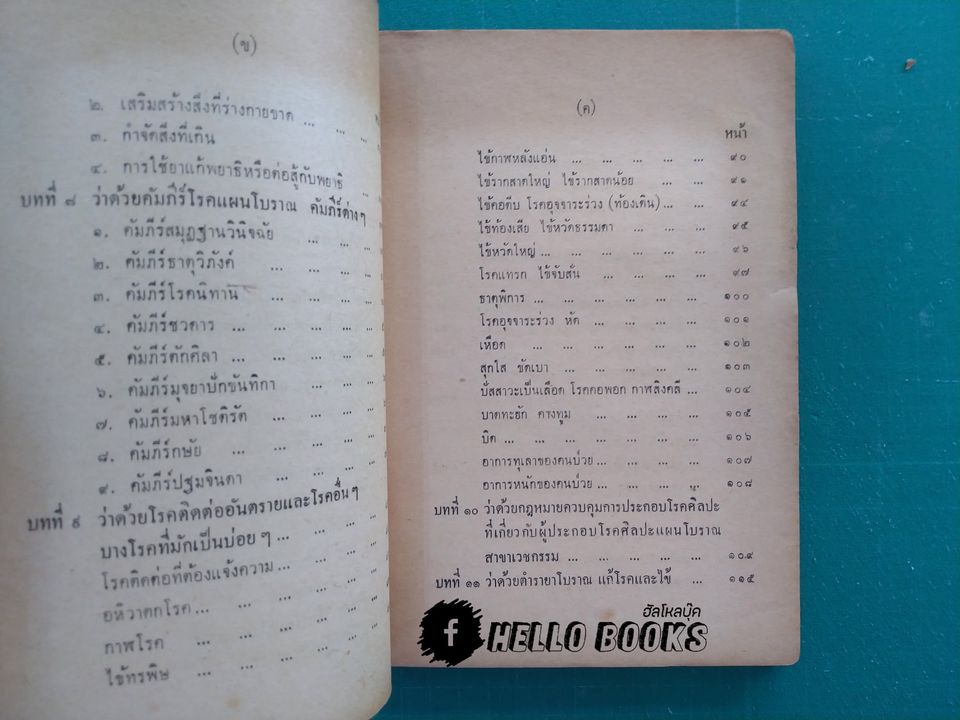 (ข)
๒. เสริมสร้างสิ่งที่ร่างกายขาด ... ...
๓. กำจัดสิ่งที่เกิน
๔. การใช้ยาแก้พยาธิหรือต่อสู้กับพยาธิ ...
บทที่ ๘ ว่าด้วยคัมภีร์โรคแผนโบราณ คัมภีร์ต่างๆ
๑. คัมภีร์สมุฏฐานวินิจฉัย ... ... ...
๒. คัมภีร์ธาตุวิภังค์ ... ... ... ...
๓. คัมภีร์โรคนิทาน ... ... ... ...
๔. คัมภีร์ชวดาร ... ... ... ... ...
๕. คัมภีร์ตักศิลา ... ... ... ... ...
๖. คัมภีร์มุจฉาปักขันทิกา ... ... ...
๗. คัมภีร์มหาโชติรัต ... ... ... ...
๘. คัมภีร์กษัย ... ... ... ... ...
๙. คัมภีร์ปฐมจินดา ... ... ... ...
บทที่ ๙ ว่าด้วยโรคติดต่ออันตรายและโรคอื่นๆ
บางโรคที่มักเป็นบ่อยๆ ... ... ...
โรคติดต่อที่ต้องแจ้งความ ... ... ...
อหิวาตกโรค ... ... ... ... ...
กาฬโรค ... ... ... ... ...
ไข้ทรพิษ ... ... ... ...
(ค)
หน้า
ไข้กาฬหลังแอ่น ... ... ... ... ... ๙๐
ไข้รากสาดใหญ่ ไข้รากสาดน้อย ... ... ๙๑
ไข้คอตีบ โรคอุจจาระร่วง (ท้องเดิน) ... ... ๙๔
ไข้ท้องเสีย ไข้หวัดธรรมดา ... ... ... ๙๕
ไข้หวัดใหญ่ ... ... ... ... ... ... ๙๖
โรคแทรก ไข้จับสั่น ... ... ... ... ๙๗
ธาตุพิการ ... ... ... ... ... ... ๑๐๐
โรคอุจจาระร่วง หัด ... ... ... ... ๑๐๑
เหือด ... ... ... ... ... ... ๑๐๒
สุกใส ขัดเบา ... ... ... ... ... ๑๐๓
ปัสสาวะเป็นเลือด โรคคอพอก กาฬสิงคลี ... ... ๑๐๔
บาดทะยัก คางทูม ... ... ... ... ๑๐๕
บิด ... ... ... ... ... ... ... ๑๐๖
อาการทุเลาของคนป่วย ... ... ... ... ๑๐๗
อาการหนักของคนป่วย ... ... ... ... ๑๐๘
บทที่ ๑๐ ว่าด้วยกฎหมายควบคุมการประกอบโรคศิลปะ
ที่เกี่ยวกับผู้ประกอบโรคศิลปะแผนโบราณ
สาขาเวชกรรม ... ... ... ... ... ๑๐๙
บทที่ ๑๑ ว่าด้วยตำรายาโบราณ แก้โรคและไข้ ... ๑๑๕
ฮัลโหลบุ๊ค
f HELLO BOOKS